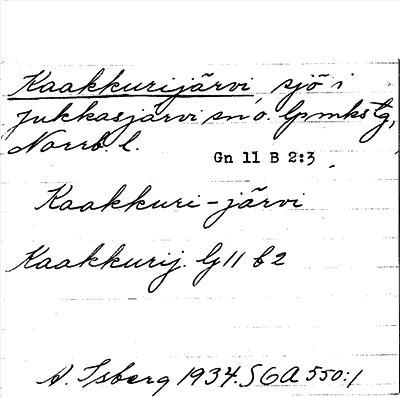 Kaakkurijärvi, sjö i
Jukkasjärvi sn o. lpmkstg,
Norrb. l.
Gn 11 B 2:3
Kaakkuri-järvi
Kaakkurij. G 11 b 2
A. Isberg 1934. SGA 550:1